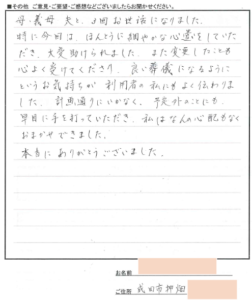 ■その他 ご意見・ご要望・ご感想などございましたらお聞かせください。
母・義母 夫と、4回お世話になりました。
特に今回は、ほんとうに細やかな心遣をしていた
だき、大変助けられました。また変更したことも
心よく受けてくださり、良い葬儀になるように
というお気持ちが 利用者の私にもよく伝わりま
した。計画通りにいかなく、予定外のことにも、
早目に手を打っていただき、私はなんの心配もなく
おまかせできました。
本当にありがとうございました。
お名前
ご住所 成田市押畑